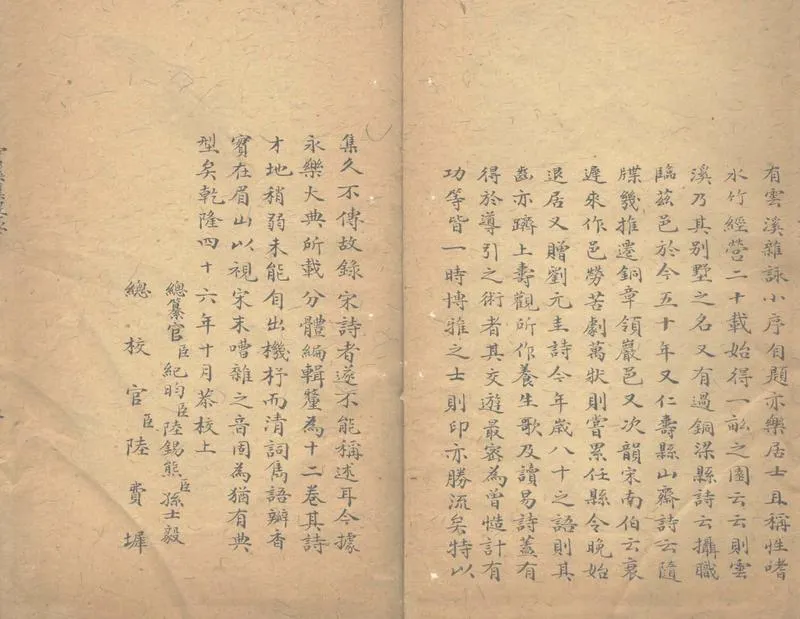 有雲溪雜詠小序自題亦樂居士且稱性嗜
水竹經營二十載始得一畝之園云云則雲
溪乃其別墅之名又有過銅梁縣詩云攝職
臨茲邑於今五十年又仁壽縣山齋詩云隨
牒幾推遷銅章領巖邑又次韻宋南伯云衰
遲來作邑勞苦劇萬狀則嘗累任縣令晚始
退居又贈劉元圭詩今年歲八十之語則其
齒亦躋上壽觀所作養生歌及讀易詩蓋有
得於導引之術者其交遊最密為曾慥計有
功等皆一時博雅之士則印亦勝流矣特以
集久不傳故錄宋詩者遂不能稱述耳今據
永樂大典所載分體編輯釐為十二卷其詩
才地稍弱未能自出機杼而清詞雋語瓣香
實在眉山以視宋末嘈雜之音固為猶有典
型矣乾隆四十六年十月恭校上
總纂官臣紀昀臣陸錫熊臣孫士毅
總校官臣陸費墀